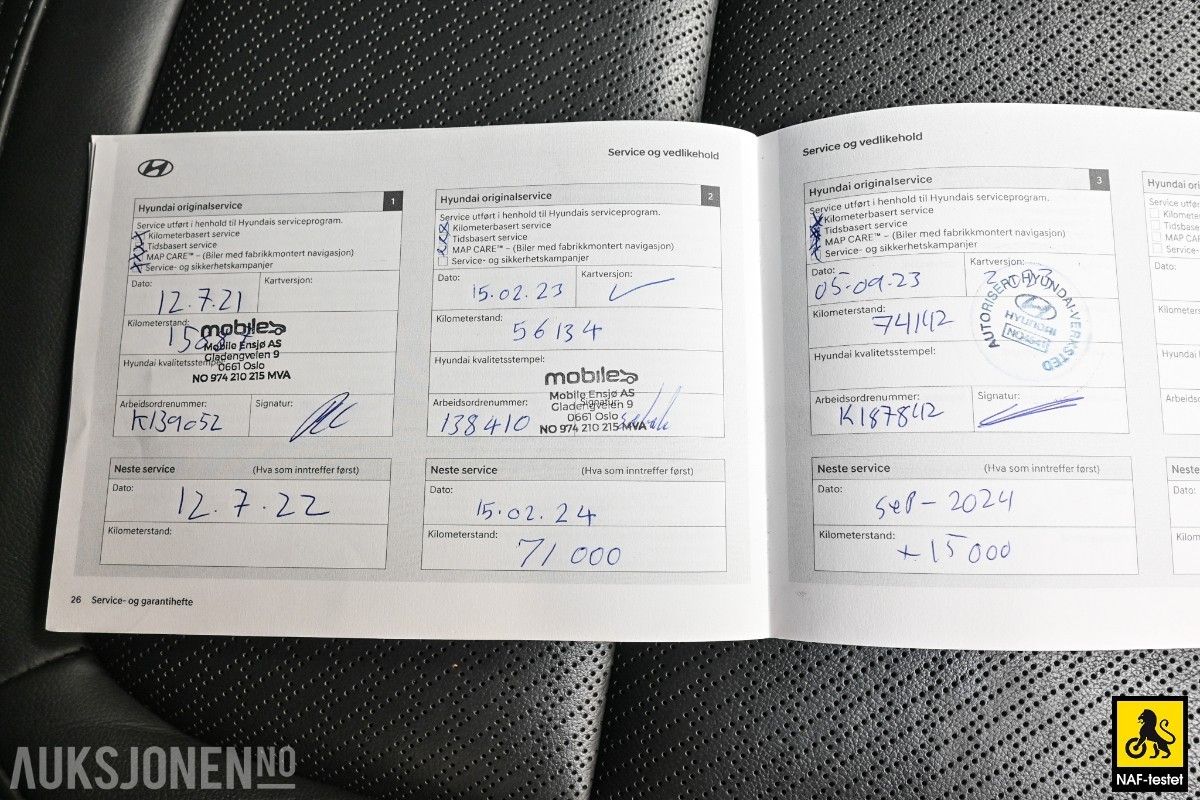 Service og vedlikehold
Hyundai originalservice 1
Service utført i henhold til Hyundais serviceprogram.
Kilometerbasert service
Tidsbasert service
MAP CARE™ – (Biler med fabrikkmontert navigasjon)
Service- og sikkerhetskampanjer
Dato:
Kartversjon:
12.7.21
Kilometerstand:
mobile
Mobile Ensjø AS
Gladengveien 9
0661 Oslo
NO 974 210 215 MVA
Hyundai kvalitetsstempel:
Arbeidsordrenummer:
Signatur:
K139052
Neste service (Hva som inntreffer først)
Dato:
12.7.22
Kilometerstand:
Hyundai originalservice 2
Service utført i henhold til Hyundais serviceprogram.
Kilometerbasert service
Tidsbasert service
MAP CARE™ – (Biler med fabrikkmontert navigasjon)
Service- og sikkerhetskampanjer
Dato:
Kartversjon:
15.02.23
Kilometerstand:
56134
Hyundai kvalitetsstempel:
mobile
Mobile Ensjø AS
Gladengveien 9
0661 Oslo
NO 974 210 215 MVA
Arbeidsordrenummer:
Signatur:
138410
Neste service (Hva som inntreffer først)
Dato:
15.02.24
Kilometerstand:
71000
26 Service- og garantihefte
Service og vedlikehold
Hyundai originalservice 3
Service utført i henhold til Hyundais serviceprogram.
Kilometerbasert service
Tidsbasert service
MAP CARE™ – (Biler med fabrikkmontert navigasjon)
Service- og sikkerhetskampanjer
Dato:
Kartversjon:
05-09-23
2023
Kilometerstand:
74142
AUTORISERT HYUNDAI-VERKSTED
HYUNDAI
Hyundai kvalitetsstempel:
Arbeidsordrenummer:
Signatur:
K187842
Neste service (Hva som inntreffer først)
Dato:
sep-2024
Kilometerstand:
+15000
Hyundai
Service utført
Kilometer
Tidsbaser
MAP CARE
Service- o
Dato:
Kilometers
Hyundai k
Arbeidsor
Neste s
Dato:
Kilom
AUKSJONEN.NO
NAF-testet